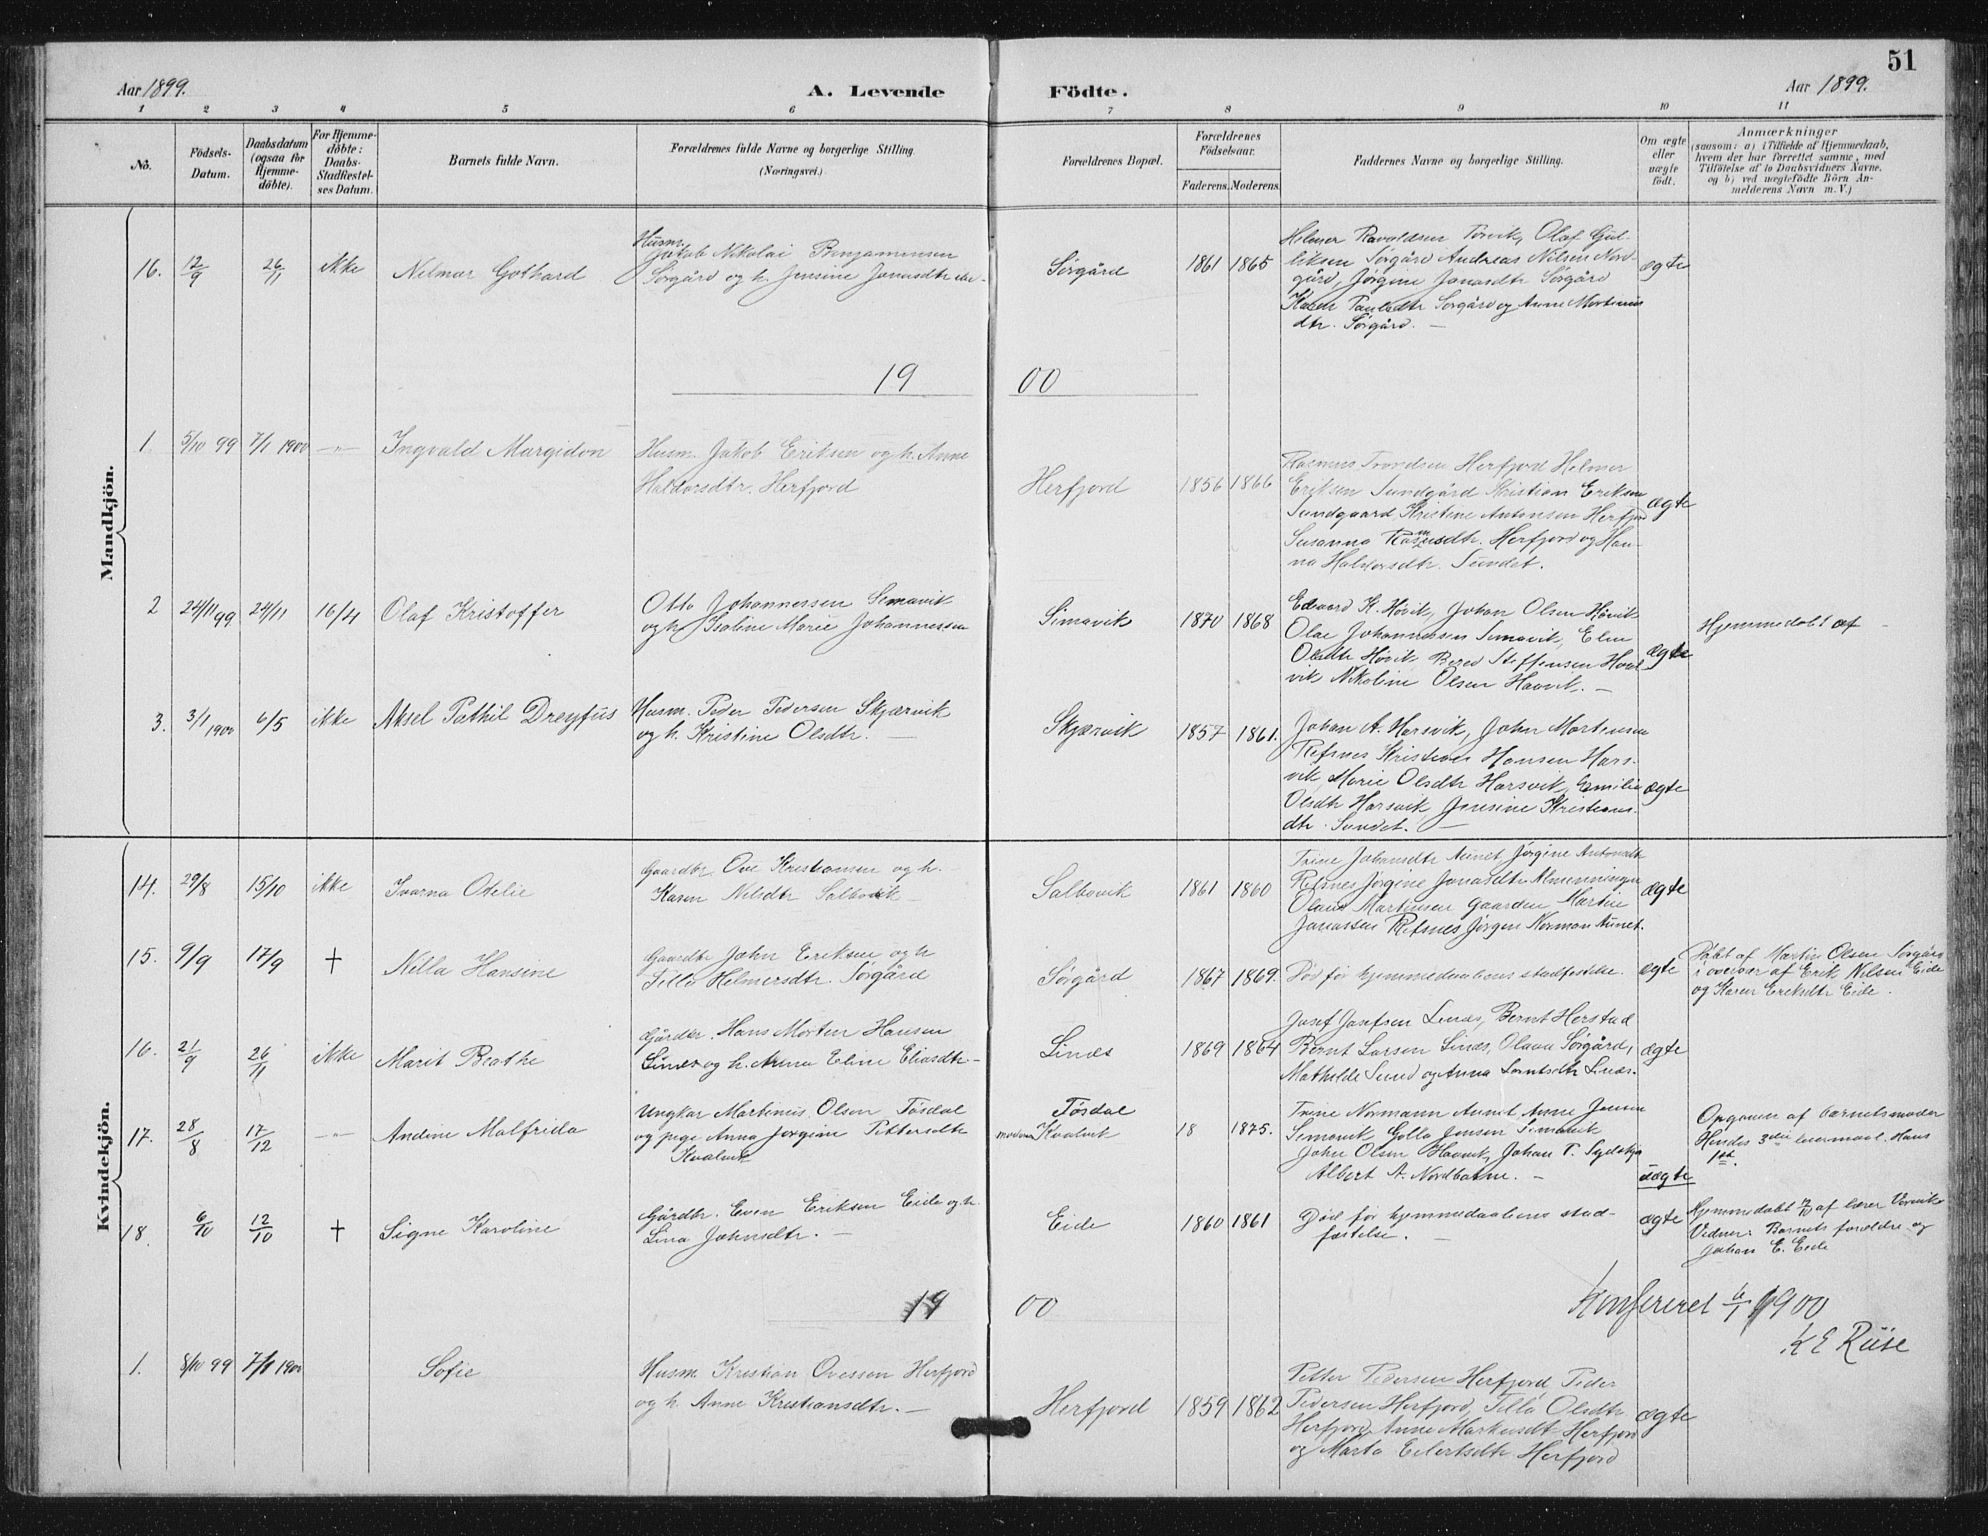 51
Aar 1899.
A. Levende
Födte.
Aar 1899.
1 2 3 4 5 6 7 8 9 10 11
No.
Födsels-
Datum.
Daabsdatum
(ogsaa for
Hjemme-
döbte).
For Hjemme-
döbte:
Daabs-
Stadfæstel-
ses Datum.
Barnets fulde Navn.
Forældrenes fulde Navne og borgerlige Stilling.
(Næringsvei.)
Forældrenes Bopæl.
Forældrenes
Födselsaar.
Faderens. Moderens.
Faddernes Navne og borgerlige Stilling.
Om ægte
eller
uægte
födt.
Anmærkninger
(saasom: a) i Tilfælde af Hjemmedaab,
hvem der har forrettet samme, med
Tilföielse af to Daabsvidners Navne,
og b) ved uægtefödte Börn An-
melderens Navn m. V.)
Mandkjön.
16. 12/9 26/11 ikke Nelmar Gothard
Husm.
Jakob Nikolai Benjaminsen
Sørgård og h. Jensine Jonasdtr
Sørgård 1861 1865
Helmer Olaf Gul-
liksen Sørgård Andreas Nilsen Nord-
gård, Jørgine Jonasdtr Sørgård
Karen Paulsdtr Sørgård og Anne Martinus
dtr. Sørgård. —
ægte
19 00
1. 5/10 99 7/1 1900 —"— Ingvald Margidon
Husm. Jakob Eriksen og h. Anne
Haldorsdtr. Herfjord
Herfjord 1856 1866
Rasmus Trondsen Herfjord Helmer
Eriksen Sundgård Kristian Eriksen
Sundgaard, Kristine Antonsen Herfjord
Susanna Rasmusdtr. Herfjord og Han-
na Haldorsdtr. Sundet.
ægte
2 24/11 99 24/11 16/4 Olaf Kristoffer
Otto Johannessen Simavik
og h. Isaline Marie Johannessen
Simavik 1870 1868
Edvard K. Høvik, Johan Olsen Høvik
Olae Johannessen Simavik, Elen
Olsdtr Høvik Steffensen
vik Nikoline Olsen Havvik. —
ægte
Hjemmedøbt af —
3. 3/1 1900 6/5 ikke Aksel Pathil Dreyfus
Husm. Peder Pedersen Skjærvik
og h. Kristine Olsdtr. —
Skjærvik 1857 1861.
Johan A. Harsvik, John Martinsen
Refsnes Kristian Hansen Hars-
vik, Marie Olsdtr Harsvik, Emilie
Olsdtr Harsvik, Jensine Kristians-
dtr. Sundet. —
ægte
Kvindekjön.
14. 29/8 15/10 ikke Ivarna Odelie
Gaardbr. Ove Kristiansen og h.
Karen Nilsdtr Salbovik
Salbovik 1861 1860
Trine Johansdtr Aunet Jørgine Antonsdtr
Refsnes Jørgine Jonasdtr Almenningen
Olaus Martinsen Gaarden Martin
Jonassen Refsnes Jørgen Norman Aunet.
ægte
15. 9/9 17/9 † Nella Hansine
Gaardbr. John Eriksen og h
Tella Helmersdtr. Sørgård
Sørgård 1867 1869.
Død før hjemmedaabens stadfestelse.
ægte
Døbt af Martin Olsen Sørgård
i overvær af Erik Nilsen Eide
og Karen Eriksdtr Eide.
16. 21/9 26/11 ikke Marit Beathe
Gårdbr. Hans Morten Hansen
Lines og h. Anna Eline Eliasdtr —
Linæs 1869 1864
Josef Josefsen Linæs, Bernt Herstad
Bernt Larsen Linæs, Olava Sørgård,
Mathilde Sund og Anna Lorntsdtr Linæs.
ægte
17. 28/8 17/12 —"— Andine Malfrida
Ungkar Martinus Olsen Tøsdal
og pige Anna Jørgine Pettersdtr
Kvalvik
Tøsdal
moderen Kvalvik 18 1875.
Trine Normann Aunet Anne Jensen
Simavik Golla Jensen Simavik
John Olsen Havvik, Johan P.
Albert A. —
uægte
Opgivelse af barnets moder
Hendes 3die leiermaal. Hans
1ste.
18. 6/10 12/10 † Signe Karoline
Gårdbr. Even Eriksen Eide og h.
Lina Johnsdtr. —
Eide 1860 1861
Død før hjemmedaabens stad-
fæstelse.
ægte
Hjemmedøbt 12/10 af lærer
Vidner: Barnets forældre og
Johan E. Eide
19 00
Konfereret 6/1 1900
K E Riise
1. 8/10 99 7/1 1900 Sofie
Husm. Kristian Ovessen Herfjord
og h. Anne Kristiansdtr. —
Herfjord 1859 1862
Petter Pedersen Herfjord, Peder
Pedersen Herfjord, Tella Olsdtr
Herfjord, Anne Markusdtr Herfjord
og Marta Eilertsdtr Herfjord
ægte